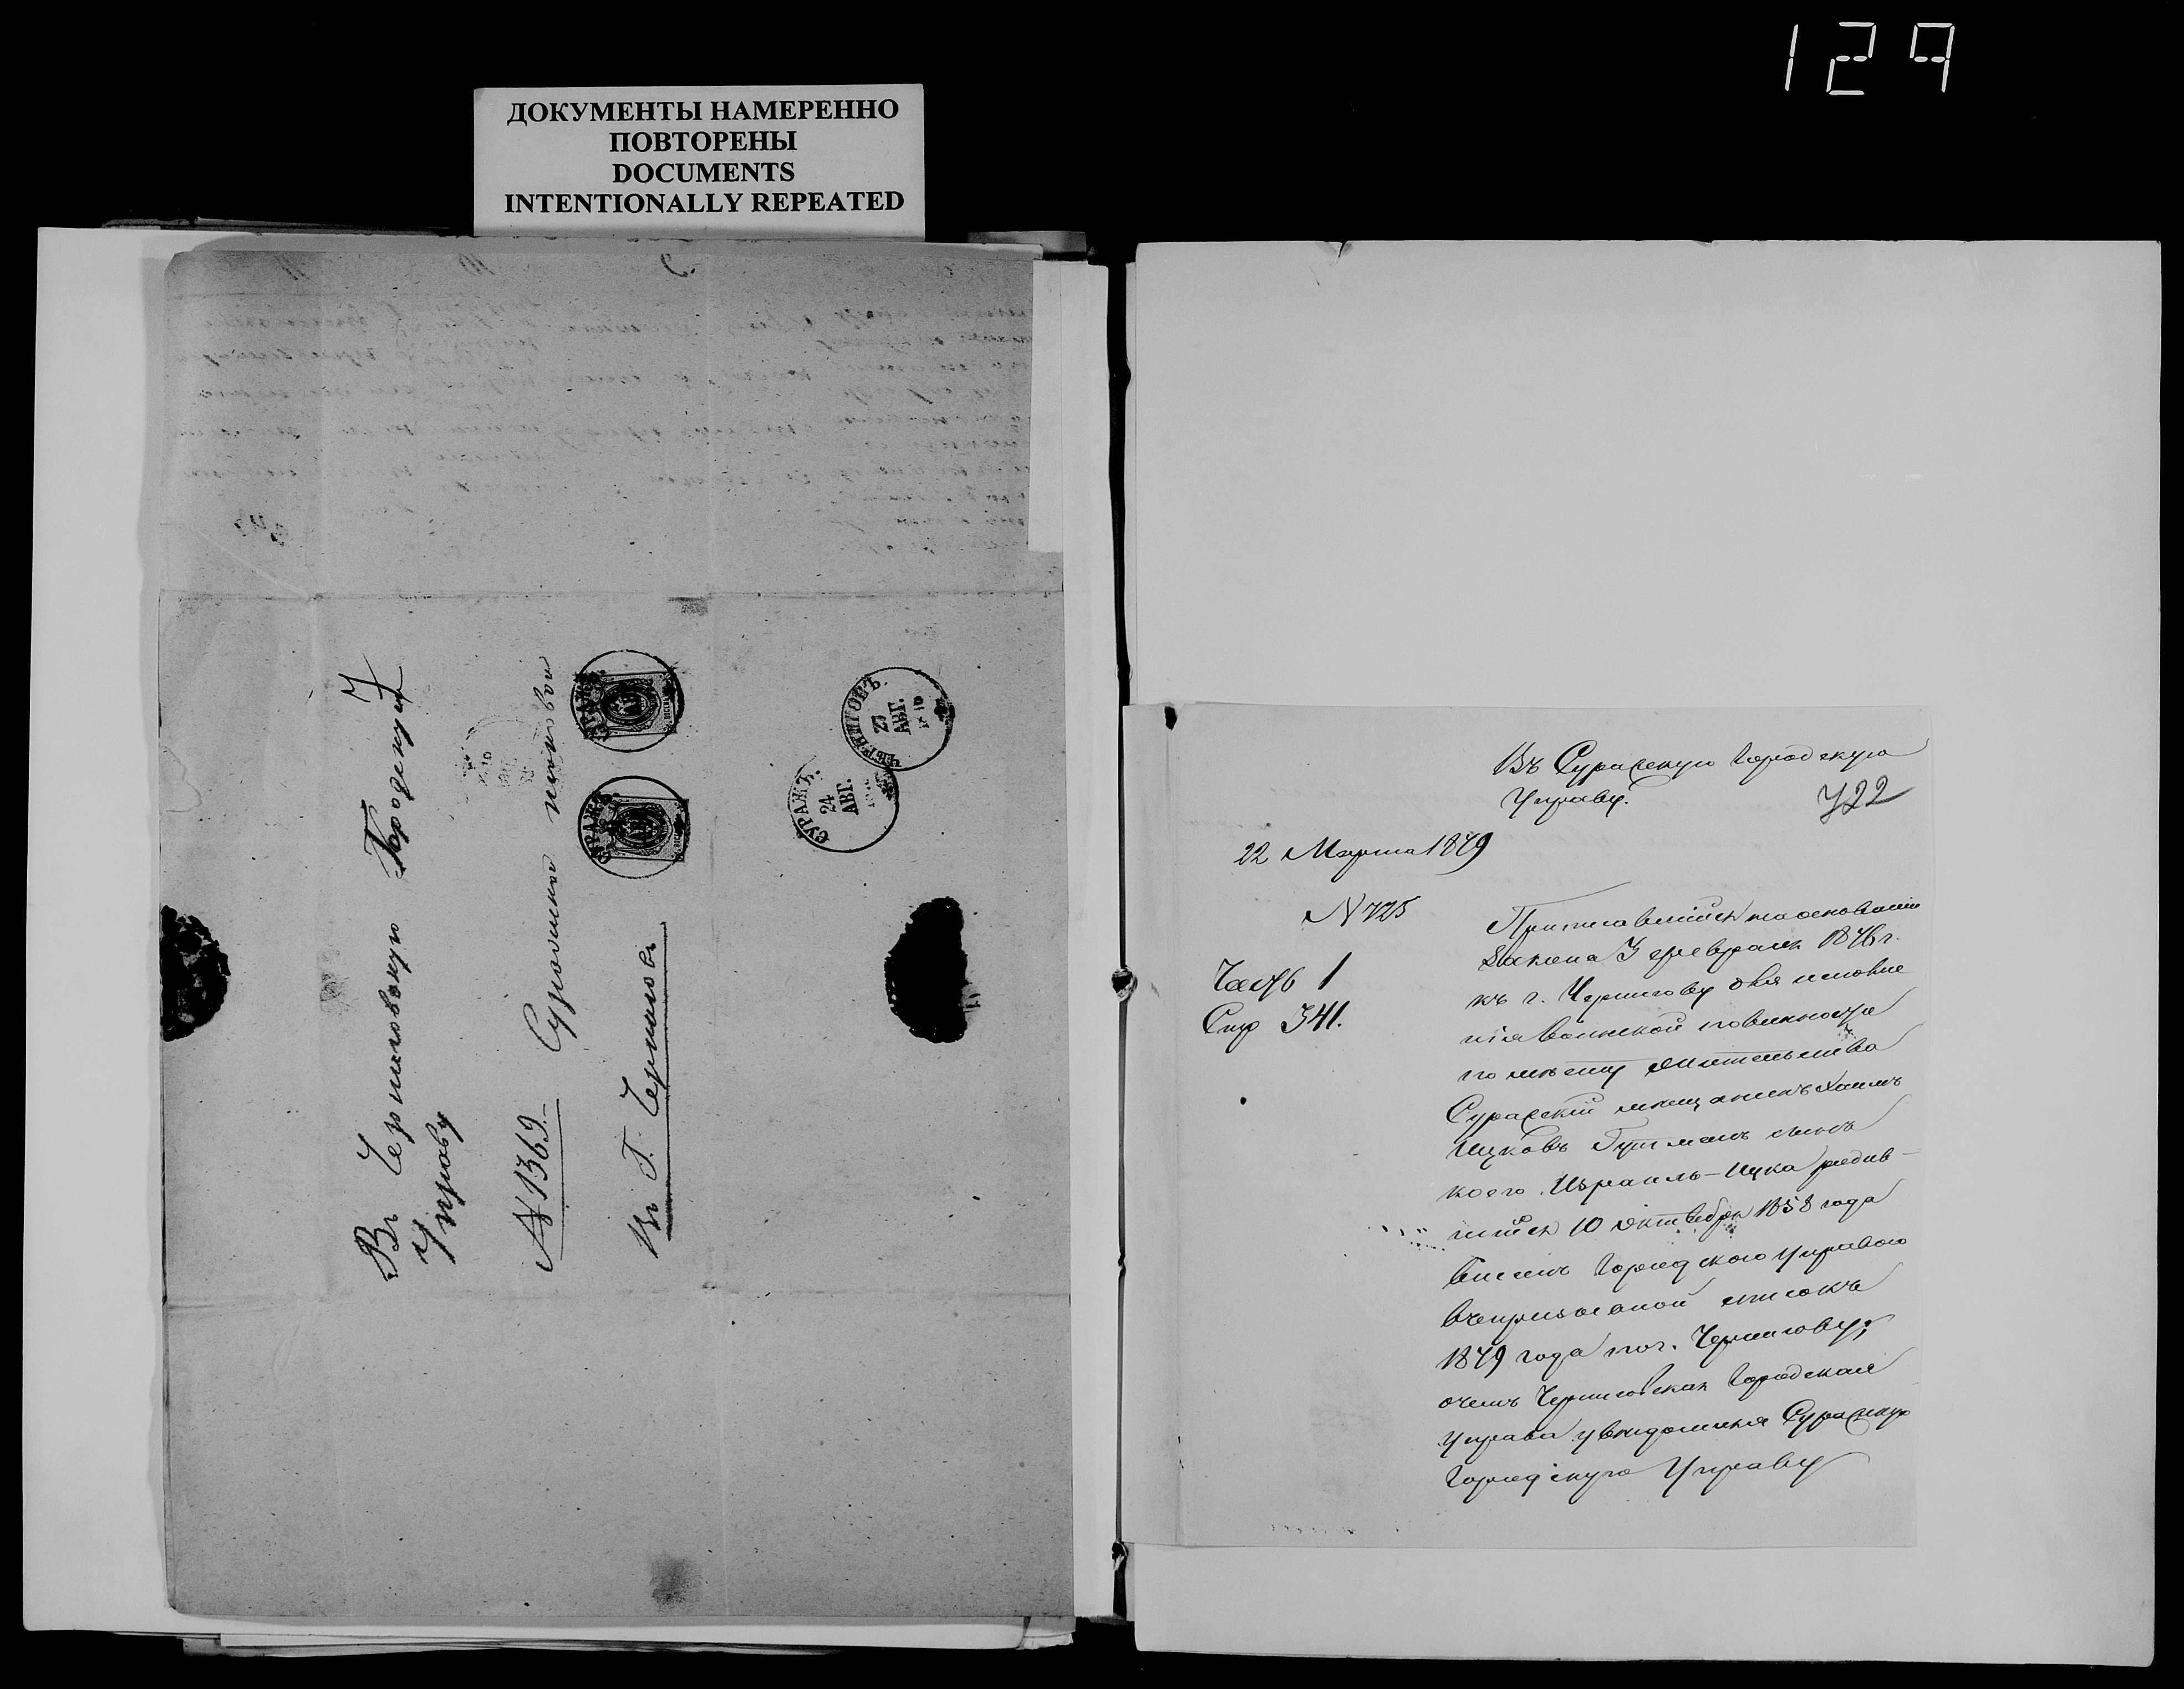 129
ДОКУМЕНТЫ НАМЕРЕННО
ПОВТОРЕНЫ
DOCUMENTS
INTENTIONALLY REPEATED
Въ Черниговскую Городскую
Управу
№ 1369
Въ Г. Черниговъ
СУРАЖЪ
СУРАЖЪ
СУРАЖЪ.
24
АВГ.
ЧЕРНИГОВЪ.
АВГ.
Въ Суражскую Городскую
Управу.
722
22 Марта 1879
N 725
Часть 1
Стр 341.
Приписавшійся на основаніи
закона 3 февраля 1876 г.
къ г. Чернигову для исполне
нія воинской повинности
по мѣсту жительства
Суражскій мѣщанинъ Хаимъ
Ицковъ Гутманъ сынъ
коего Израиль-Ицка родив-
шійся 10 Октября 1858 года
внесенъ Городскою Управою
въ призывной списокъ
1879 года по г. Чернигову;
о чемъ Черниговская Городская
Управа увѣдомляя Суражскую
Городскую Управу